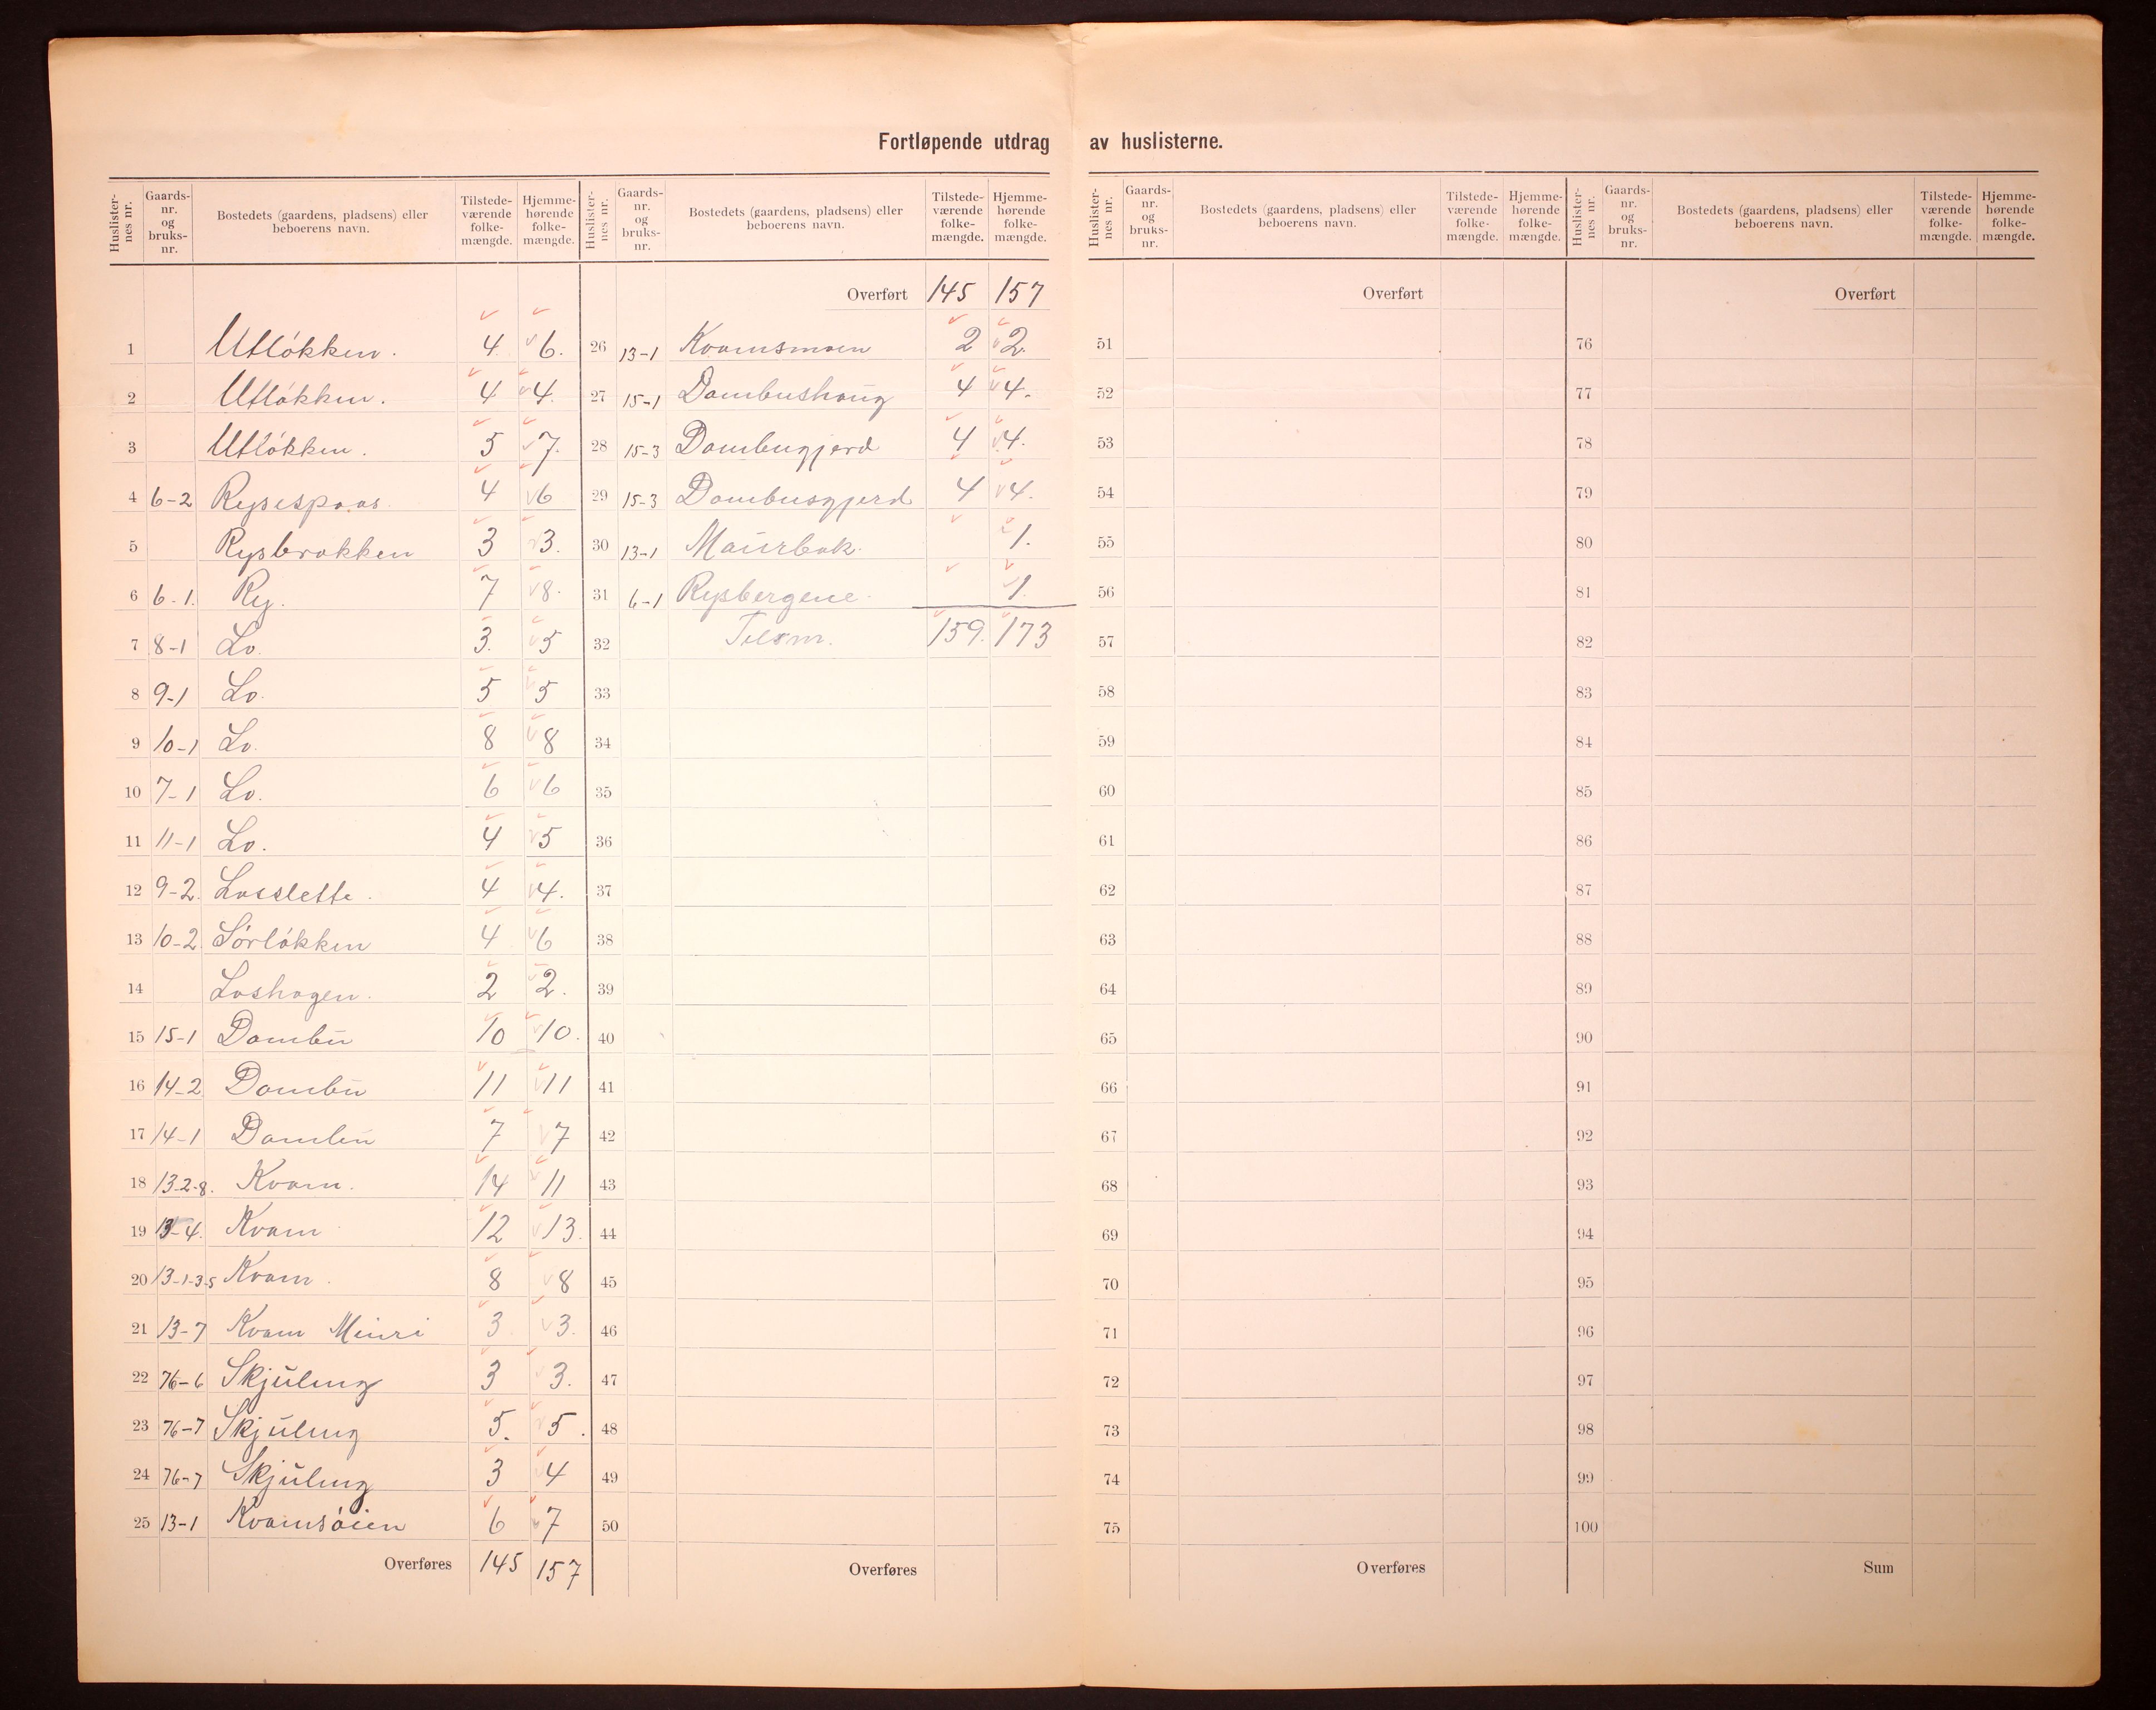 Fortløpende utdrag av huslisterne.
Huslisternes nr. Gaards-nr. og bruks-nr. Bostedets (gaardens, pladsens) eller beboerens navn. Tilstedeværende folkemængde. Hjemmehørende folkemængde.
1 Utløkken. 4 6.
2 Utløkken. 4 4.
3 Utløkken. 5 7.
4 6-2 Rysespaas 4 6
5 Rysbrokken 3 3.
6 6-1. Ry. 7 8.
7 8-1 Lo. 3. 5
8 9-1 Lo. 5 5
9 10-1 Lo. 8 8
10 7-1 Lo. 6 6
11 11-1 Lo. 4 5
12 9-2. Losslette. 4 4.
13 10-2. Sørløkken 4 6
14 Loshagen. 2 2.
15 15-1 Dombü 10 10.
16 14-2 Dombü 11 11
17 14-1 Dombü 7 7
18 13-2-8. Kvam. 14 11
19 13-4. Kvam 12 13.
20 13-1-3-5 Kvam. 8 8
21 13-7 Kvam 3 3.
22 76-6 Skjüling 3 3.
23 76-7 Skjüling 5. 5.
24 76-7 Skjüling 3 4
25 13-1 Kvamsøien 6 7
Overføres 145 157
Huslisternes nr. Gaards-nr. og bruks-nr. Bostedets (gaardens, pladsens) eller beboerens navn. Tilstedeværende folkemængde. Hjemmehørende folkemængde.
Overført 145 157
26 13-1 Kvamsmoen 2 2.
27 15-1 Dombushaug 4 4.
28 15-3 Dombugjerd 4 4.
29 15-3 Dombusgjerd 4 4.
30 13-1 Maurbak. 1.
31 6-1 Rysbergene. 1.
32 Tilsm. 159. 173
33
34
35
36
37
38
39
40
41
42
43
44
45
46
47
48
49
50
Overføres
Huslisternes nr. Gaards-nr. og bruks-nr. Bostedets (gaardens, pladsens) eller beboerens navn. Tilstedeværende folkemængde. Hjemmehørende folkemængde.
Overført
51
52
53
54
55
56
57
58
59
60
61
62
63
64
65
66
67
68
69
70
71
72
73
74
75
Overføres
Huslisternes nr. Gaards-nr. og bruks-nr. Bostedets (gaardens, pladsens) eller beboerens navn. Tilstedeværende folkemængde. Hjemmehørende folkemængde.
Overført
76
77
78
79
80
81
82
83
84
85
86
87
88
89
90
91
92
93
94
95
96
97
98
99
100
Sum